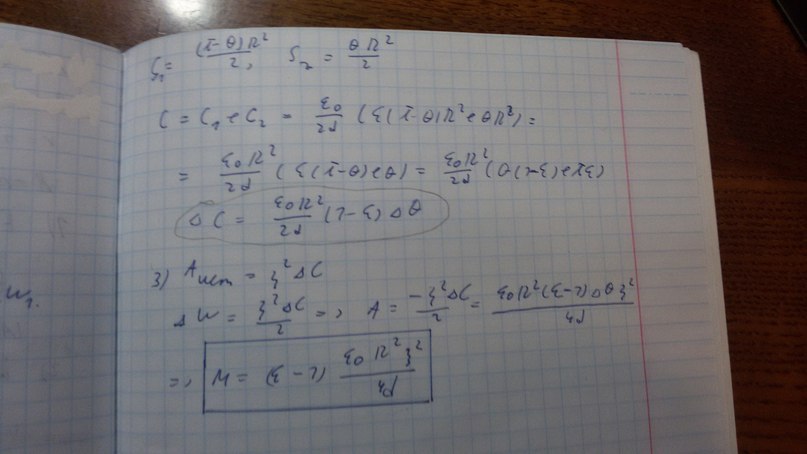 S₁ = (π-θ)R²/2, S₂ = θR²/2
C = C₁ + C₂ = ε₀/2d (ε(π-θ)R² + θR²) =
= ε₀R²/2d (ε(π-θ)+θ) = ε₀R²/2d (θ(1-ε)+πε)
ΔC = ε₀R²/2d (1-ε) Δθ
3) Aист = ξ² ΔC
ΔW = ξ²ΔC/2 => A = -ξ²ΔC/2 = ε₀R²(ε-1)Δθ ξ²/4d
=> M = (ε-1) ε₀R²ξ²/4d
W₁.